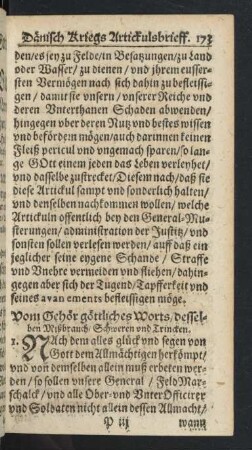 Dänisch Kriegs Artickulsbrieff. 173
den/es sey zu Felde/in Besatzungen/zu Land
oder Wasser/ zu dienen / vnd jhrem eusser-
sten Vermögen nach sich dahin zu befleissi-
gen / damit sie vnsern / vnserer Reiche vnd
deren Vnterthanen Schaden abwenden/
hingegen vber deren Nutz vnd bestes wissen
vnd befördern mögen/auch darinnen keinen
Fleiß pericul vnd vngemach sparen/so lan-
ge GOtt einem jeden das Leben verleyhet/
vnd dasselbe zustrecket/Diesem nach/daß sie
diese Artickul sampt vnd sonderlich halten/
vnd denselben nachkommen wollen/ welche
Artickuln offentlich bey den General-Mu-
sterungen/ administration der Justitz/ vnd
sonsten sollen verlesen werden/ auff daß ein
jeglicher seine eygene Schande / Straffe
vnd Vnehre vermeiden vnd fliehen/ dahin-
gegen aber sich der Tugend/Tapfferkeit vnd
seines avancements befleissigen möge.
Vom Gehör göttliches Worts/dessel-
ben Mißbrauch/ Schweren vnd Trincken.
1. NAch dem alles glück vnd segen von
Gott dem Allmächtigen herkömpt/
vnd von demselben allein muß erbeten wer-
den / so sollen vnsere General / FeldMar-
schalck/ vnd alle Ober-vnd VnterOfficirer
vnd Soldaten nicht allein dessen Allmacht/
P iij wann